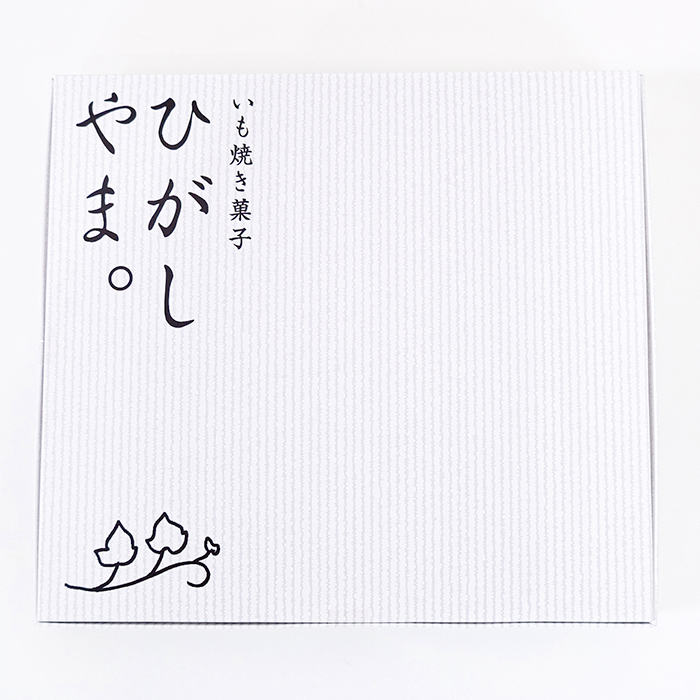 いも焼き菓子
ひがし
やま。